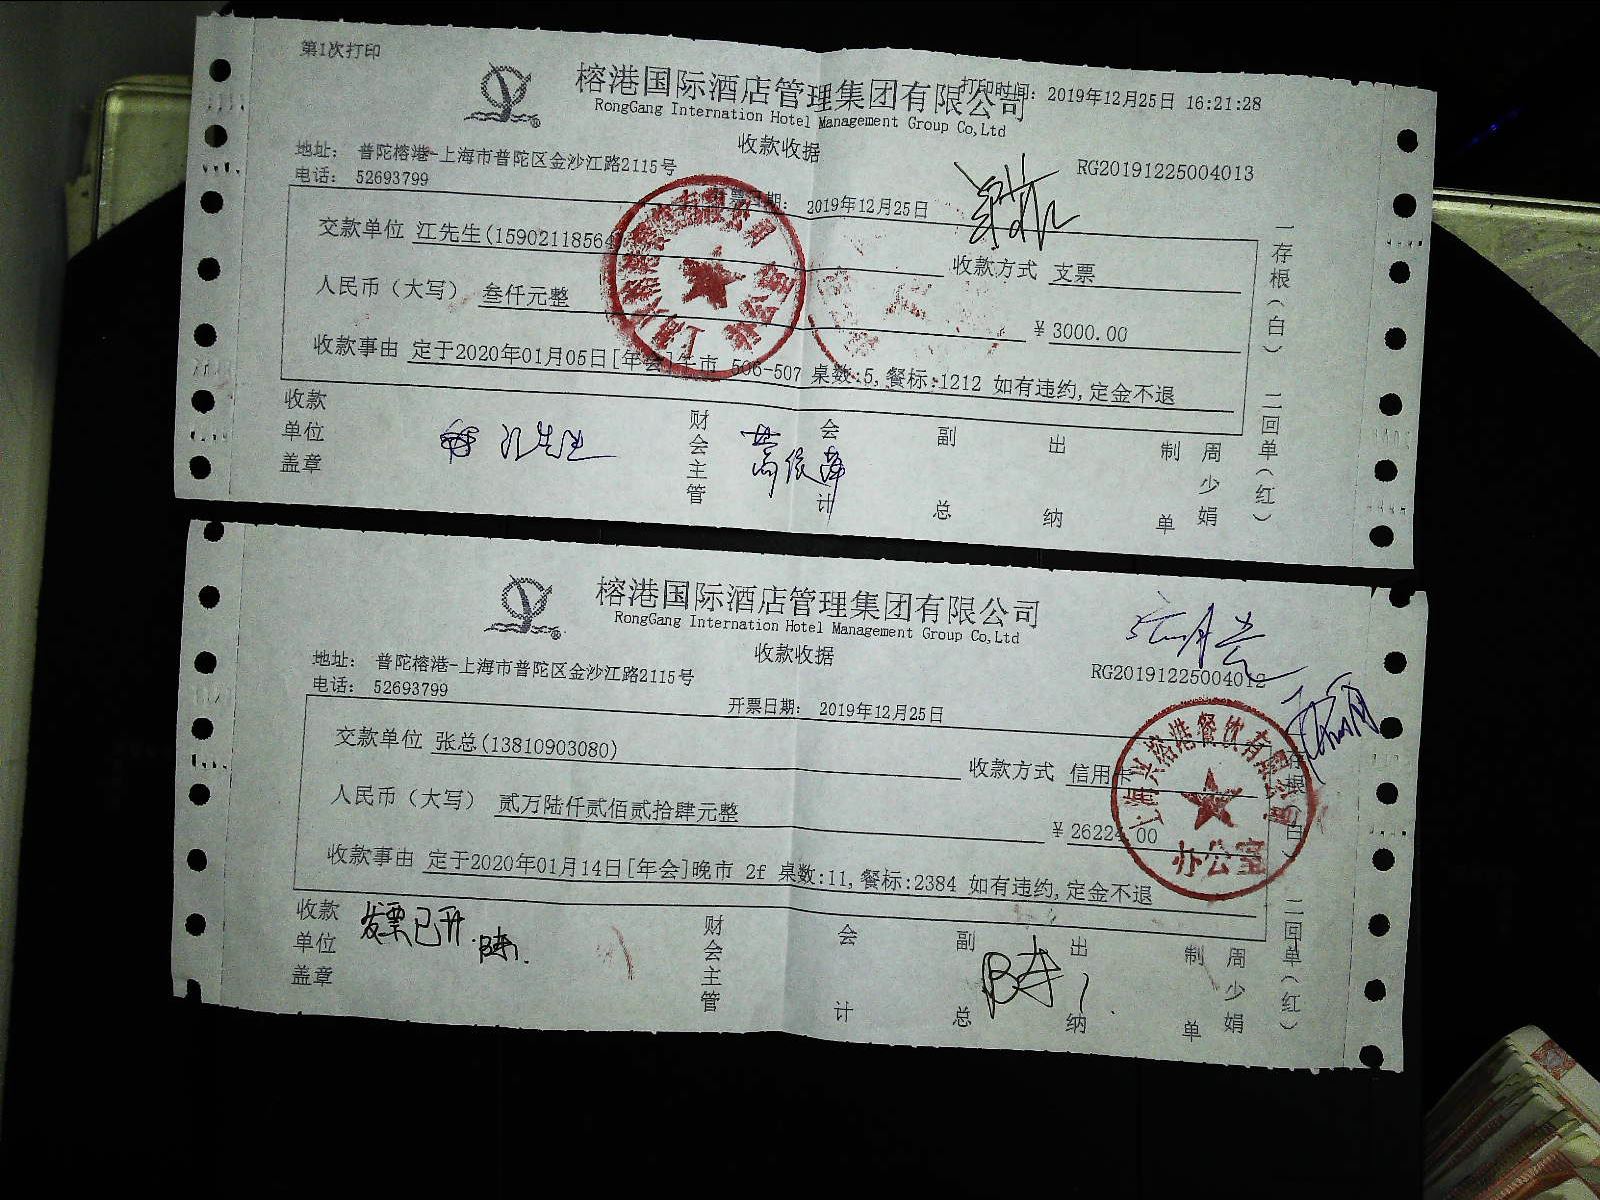 第1次打印
榕港国际酒店管理集团有限公司
打印时间: 2019年12月25日 16:21:28
RongGang Internation Hotel Management Group Co,Ltd
收款收据
地址: 普陀榕港-上海市普陀区金沙江路2115号
RG20191225004013
电话: 52693799
开票日期: 2019年12月25日
交款单位 江先生(15902118564)
收款方式 支票
人民币(大写) 叁仟元整
¥3000.00
收款事由 定于2020年01月05日[年会]午市 506-507 桌数:5,餐标:1212 如有违约,定金不退
一存根(白) 二回单(红)
收款单位盖章
江先生
财会主管
会计
副总
出纳
制单
周少娟
榕港国际酒店管理集团有限公司
RongGang Internation Hotel Management Group Co,Ltd
收款收据
地址: 普陀榕港-上海市普陀区金沙江路2115号
RG20191225004012
电话: 52693799
开票日期: 2019年12月25日
交款单位 张总(13810903080)
收款方式 信用卡
人民币(大写) 贰万陆仟贰佰贰拾肆元整
¥26224.00
收款事由 定于2020年01月14日[年会]晚市 2f 桌数:11,餐标:2384 如有违约,定金不退
一存根(白) 二回单(红)
办公室
收款单位盖章
发票已开
财会主管
会计
副总
出纳
制单
周少娟